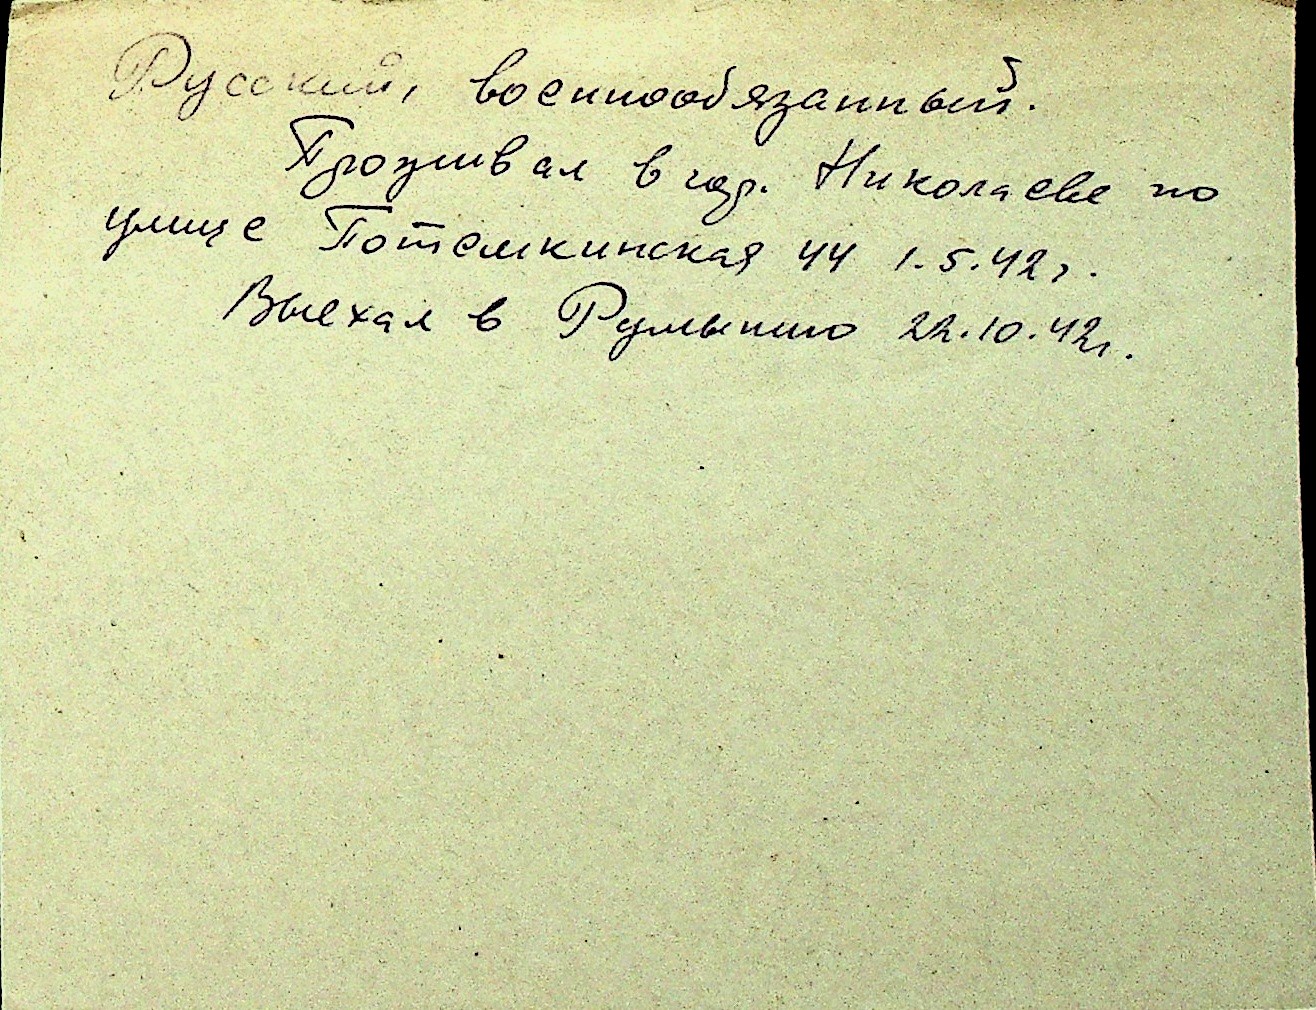 Русский, военнообязанный.
Проживал в гор. Николаеве по
улице Потемкинская 44 1.5.42г.
Выехал в Румынию 22.10.42г.